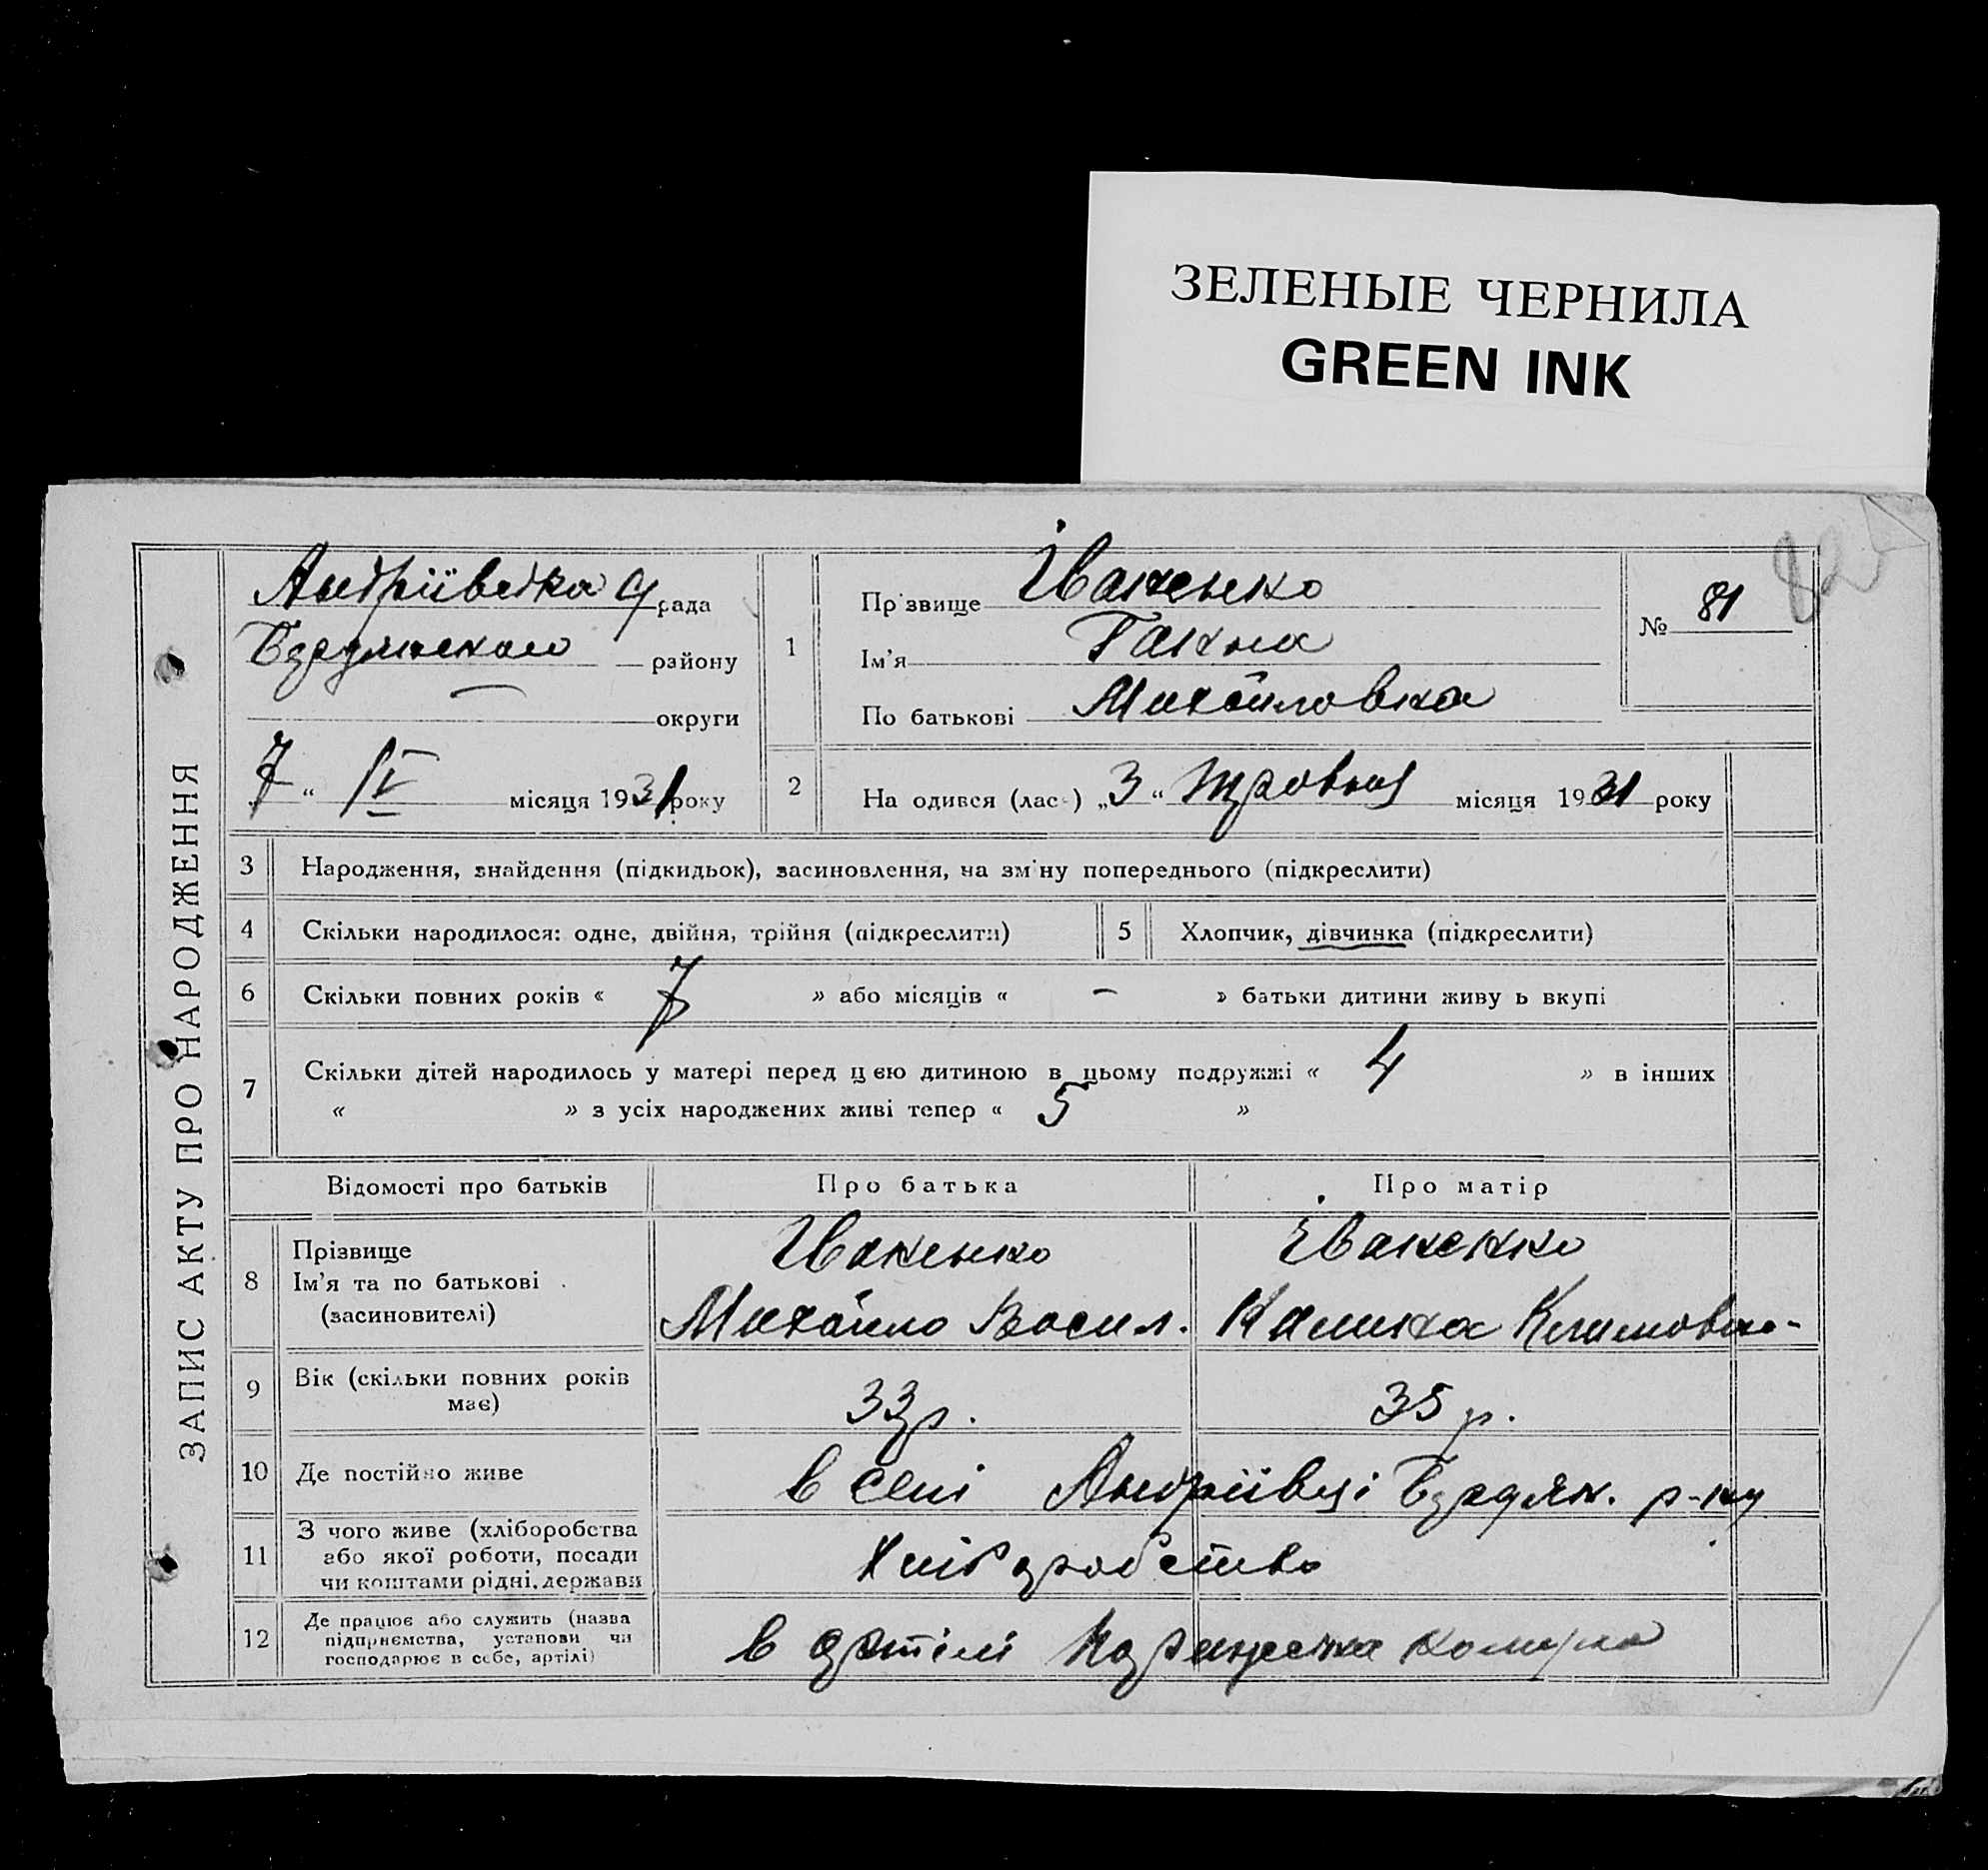 ЗЕЛЕНЫЕ ЧЕРНИЛА
GREEN INK
82
ЗАПИС АКТУ ПРО НАРОДЖЕННЯ
Андріївська С/рада
району
округи
„7“ IV місяця 1931 року
1
Пр звище Іваненко
Ім'я Ганна
По батькові Михайловна
№ 81
2 На одився (лас ) „3“ травня місяця 1931 року
3 Народження, знайдення (підкидьок), засиновлення, на зм ну попереднього (підкреслити)
4 Скільки народилося: одне, двійня, трійня (підкреслити)
5 Хлопчик, дівчинка (підкреслити)
6 Скільки повних років « 7 » або місяців « – » батьки дитини живу ь вкупі
7 Скільки дітей народилось у матері перед цією дитиною в цьому подружжі « 4 » в інших
« » з усіх народжених живі тепер « 5 »
Відомості про батьків Про батька Про матір
8 Прізвище Іваненко Іваненко
Ім'я та по батькові Михайло Васил. Климовна
(засиновителі)
9 Вік (скільки повних років має) 33 р. 35 р.
10 Де постійно живе в селі Андріївці Бердян. р-ну
11 З чого живе (хліборобства
або якої роботи, посади
чи коштами рідні, держави
Хліборобство
12 Де працює або служить (назва
підприємства, установи чи
господарює в себе, артілі)
в артілі